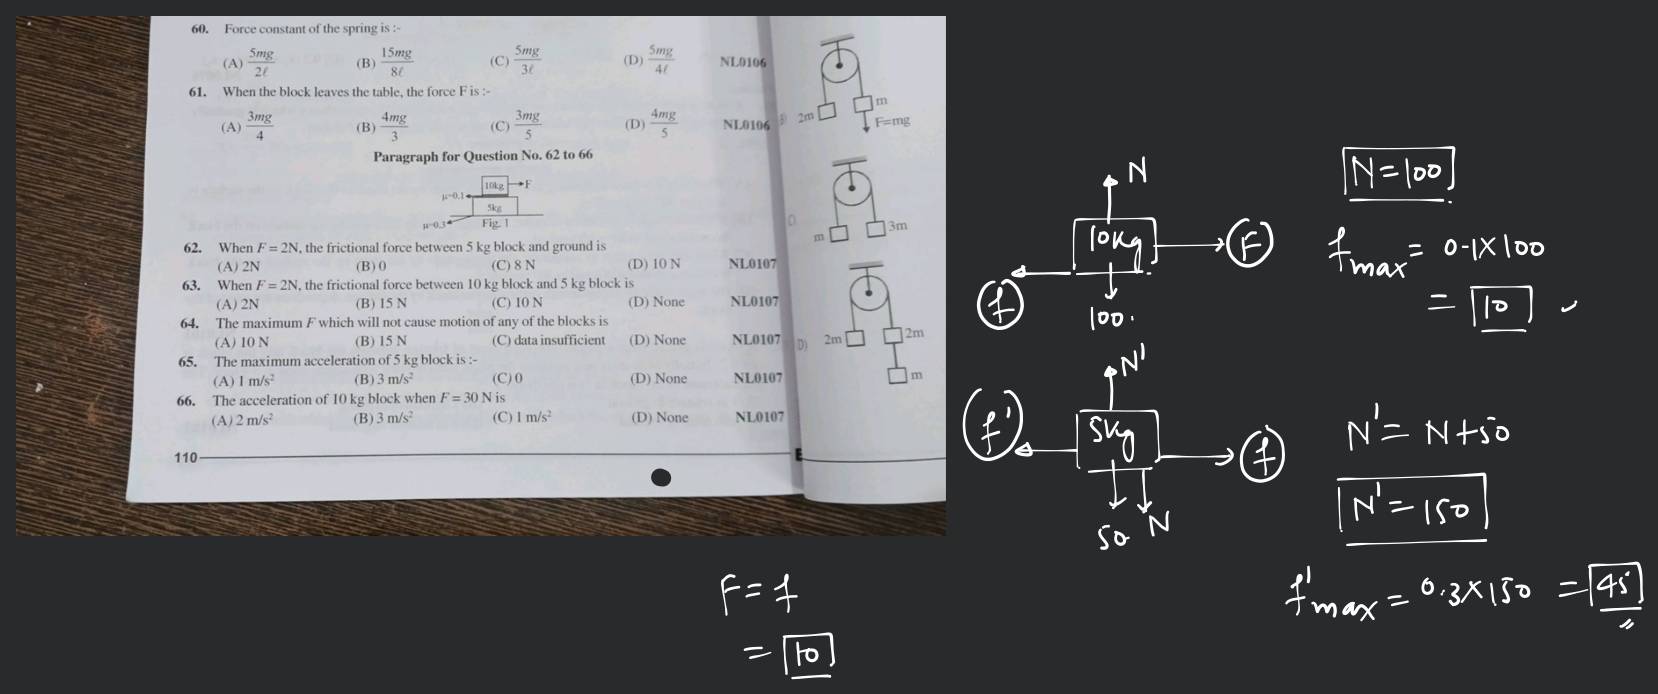 60. Force constant of the spring is :-
(A) 5mg/2ℓ (B) 15mg/8ℓ (C) 5mg/3ℓ (D) 5mg/4ℓ NL0106
61. When the block leaves the table, the force F is :-
(A) 3mg/4 (B) 4mg/3 (C) 3mg/5 (D) 4mg/5 NL0106
Paragraph for Question No. 62 to 66
10kg F
μ=0.1
5kg
μ=0.3 Fig. 1
62. When F = 2N, the frictional force between 5 kg block and ground is
(A) 2N (B) 0 (C) 8 N (D) 10 N NL0107
63. When F = 2N, the frictional force between 10 kg block and 5 kg block is
(A) 2N (B) 15 N (C) 10 N (D) None NL0107
64. The maximum F which will not cause motion of any of the blocks is
(A) 10 N (B) 15 N (C) data insufficient (D) None NL0107
65. The maximum acceleration of 5 kg block is :-
(A) 1 m/s² (B) 3 m/s² (C) 0 (D) None NL0107
66. The acceleration of 10 kg block when F = 30 N is
(A) 2 m/s² (B) 3 m/s² (C) 1 m/s² (D) None NL0107
110
E
2m m
F=mg
m 3m
D) 2m 2m
m
N
10kg F
f
100.
N = 100
fmax = 0.1×100
= 10
N'
f' 5kg f
50 N
N' = N+50
N' = 150
f'max = 0.3×150 = 45
F = f
= 10